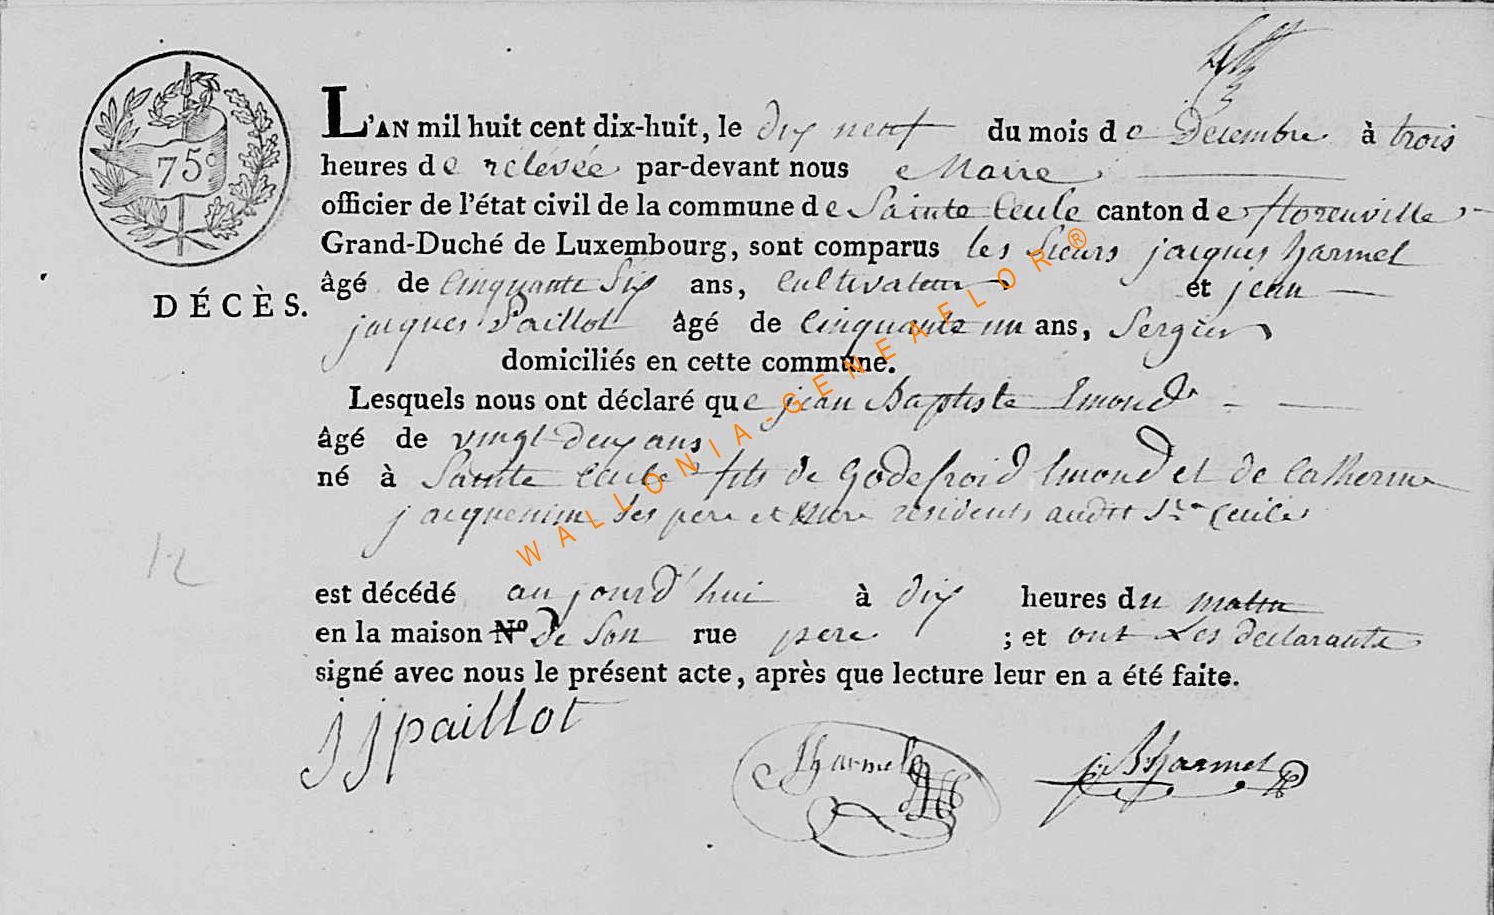 75c
L'AN mil huit cent dix-huit, le dix neuf du mois de Decembre à trois
heures de relevée par-devant nous Maire
officier de l'état civil de la commune de Sainte Cecile canton de florenville
Grand-Duché de Luxembourg, sont comparus les Sieurs jacques harmel
âgé de Cinquante Six ans, Cultivateur et jean
DÉCÈS.
jacques Paillot âgé de Cinquante un ans, Sergier
domiciliés en cette commune.
Lesquels nous ont déclaré que jean Baptiste Emond
âgé de vingt deux ans
né à Sainte Cecile fils de Godefroid Emond et de Catherine
jacquemin Ses pere et Mere residents audit Ste Cecile
12
est décédé aujourd'hui à dix heures du matin
en la maison N.º de Son rue pere ; et ont Les declarants
signé avec nous le présent acte, après que lecture leur en a été faite.
j j paillot
harmel
harmel
WALLONIA-GENEAELOR®